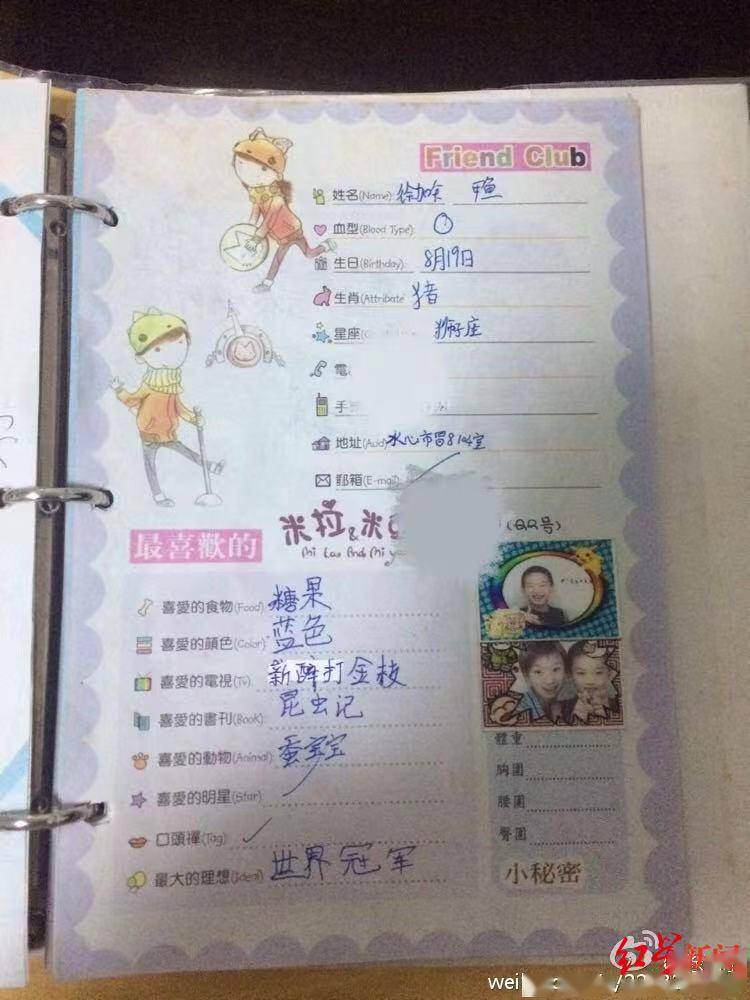 Friend Club
姓名(Name): 徐加余 甲鱼
血型(Blood Type): O
生日(Birthday): 8月19日
生肖(Attribute 猪
星座( 狮子座
電(
手
地址(Add) 水心市留8 104室
郵箱(E-mail)
(QQ号)
最喜歡的 米拉&米
喜愛的食物(Food) 糖果
喜愛的顏色(Color) 蓝色
喜愛的電視(Tv) 新醉打金枝
喜愛的書刊(BooK): 昆虫记
喜愛的動物(Animal) 蚕宝宝
喜愛的明星(Star)
口頭禪(Tag)
最大的理想(Ideal) 世界冠军
體重
胸圍
腰圍
臀圍
小秘密
红星新闻
wei